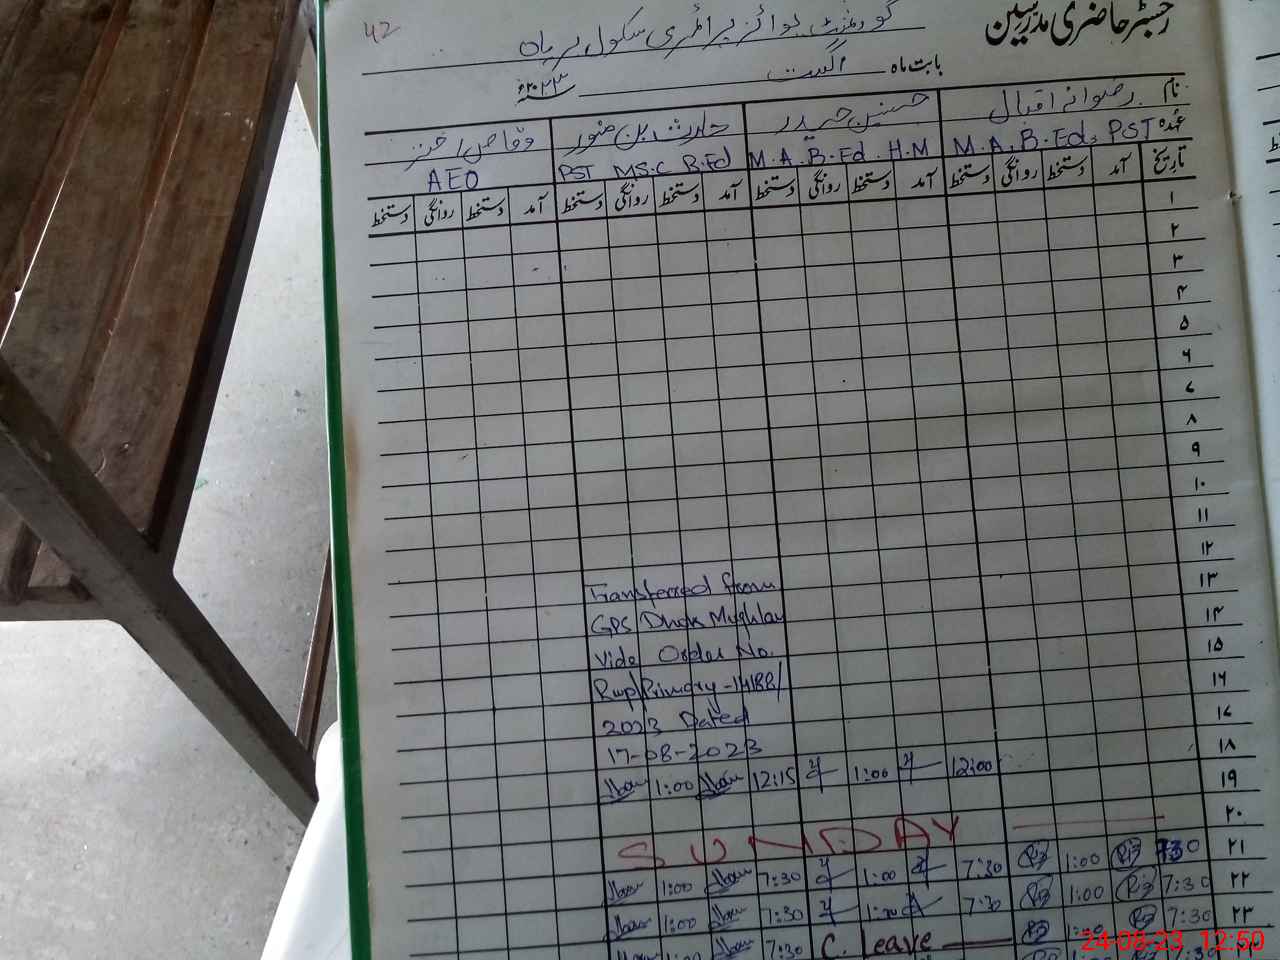 42
رجسٹر حاضری مدرسین
گورنمنٹ بوائز پرائمری سکول
بابت ماہ اگست ۲۰۲۳ء
نام رضوانہ اقبال حسنین حیدر حارث بن منور وقاص اختر
عہدہ M.A, B.Ed, PST M.A. B.Ed. H.M PST MS.C B.Ed AEO
تاریخ آمد دستخط روانگی دستخط آمد دستخط روانگی دستخط آمد دستخط روانگی دستخط آمد دستخط روانگی دستخط
۱
۲
۳
۴
۵
۶
۷
۸
۹
۱۰
۱۱
۱۲
۱۳ Transferred from
۱۴ GPS Dhok Mughlan
۱۵ Vide Order No.
۱۶ Rwp/Primary-14188/
۱۷ 2023 Dated
۱۸ 17-08-2023
۱۹ 12:00 1:00 12:15 1:00
۲۰ SUNDAY
۲۱ 7:30 1:00 7:30 1:00 7:30 1:00
۲۲ 7:30 1:00 7:30 1:00 7:30 1:00
۲۳ 7:30 1:00 C. Leave 7:30
24-08-23 12:50